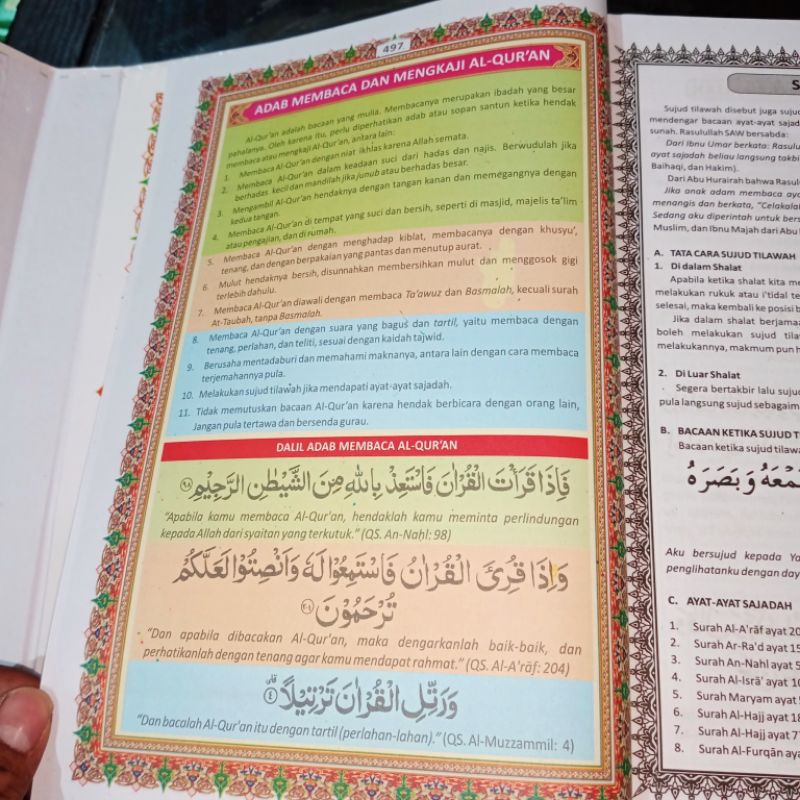 497
ADAB MEMBACA DAN MENGKAJI AL-QUR'AN
Al-Qur'an adalah bacaan yang mulia. Membacanya merupakan ibadah yang besar
pahalanya. Oleh karena itu, perlu diperhatikan adab atau sopan santun ketika hendak
membaca atau mengkaji Al-Qur'an, antara lain:
1. Membaca Al-Qur'an dengan niat ikhlas karena Allah semata.
2. Membaca Al-Qur'an dalam keadaan suci dari hadas dan najis. Berwudulah jika
berhadas kecil dan mandilah jika junub atau berhadas besar.
3. Mengambil Al-Qur'an hendaknya dengan tangan kanan dan memegangnya dengan
kedua tangan.
4. Membaca Al-Qur'an di tempat yang suci dan bersih, seperti di masjid, majelis ta'lim
atau pengajian, dan di rumah.
5. Membaca Al-Qur'an dengan menghadap kiblat, membacanya dengan khusyu',
tenang, dan dengan berpakaian yang pantas dan menutup aurat.
6. Mulut hendaknya bersih, disunnahkan membersihkan mulut dan menggosok gigi
terlebih dahulu.
7. Membaca Al-Qur'an diawali dengan membaca Ta'awuz dan Basmalah, kecuali surah
At-Taubah, tanpa Basmalah.
8. Membaca Al-Qur'an dengan suara yang bagus dan tartil, yaitu membaca dengan
tenang, perlahan, dan teliti, sesuai dengan kaidah tajwid.
9. Berusaha mentadaburi dan memahami maknanya, antara lain dengan cara membaca
terjemahannya pula.
10. Melakukan sujud tilawah jika mendapati ayat-ayat sajadah.
11. Tidak memutuskan bacaan Al-Qur'an karena hendak berbicara dengan orang lain,
Jangan pula tertawa dan bersenda gurau.
DALIL ADAB MEMBACA AL-QUR'AN
فَاِذَا قَرَأْتَ الْقُرْاٰنَ فَاسْتَعِذْ بِاللّٰهِ مِنَ الشَّيْطٰنِ الرَّجِيْمِ ٩٨
"Apabila kamu membaca Al-Qur'an, hendaklah kamu meminta perlindungan
kepada Allah dari syaitan yang terkutuk." (QS. An-Naḥl: 98)
وَاِذَا قُرِئَ الْقُرْاٰنُ فَاسْتَمِعُوْا لَهٗ وَاَنْصِتُوْا لَعَلَّكُمْ
تُرْحَمُوْنَ ٢٠٤
"Dan apabila dibacakan Al-Qur'an, maka dengarkanlah baik-baik, dan
perhatikanlah dengan tenang agar kamu mendapat rahmat." (QS. Al-A'rāf: 204)
وَرَتِّلِ الْقُرْاٰنَ تَرْتِيْلًاۗ ٤
"Dan bacalah Al-Qur'an itu dengan tartil (perlahan-lahan)." (QS. Al-Muzzammil: 4)
S
Sujud tilawah disebut juga sujud
mendengar bacaan ayat-ayat sajad
sunah. Rasulullah SAW bersabda:
Dari Ibnu Umar berkata: Rasulu
ayat sajadah beliau langsung takbi
Baihaqi, dan Hakim).
Dari Abu Hurairah bahwa Rasul
Jika anak adam membaca aya
menangis dan berkata, "Celakalah
Sedang aku diperintah untuk bers
Muslim, dan Ibnu Majah dari Abu
A. TATA CARA SUJUD TILAWAH
1. Di dalam Shalat
Apabila ketika shalat kita me
melakukan rukuk atau i'tidal te
selesai, maka kembali ke posisi b
Jika dalam shalat berjamaa
boleh melakukan sujud tila
melakukannya, makmum pun h
2. Di Luar Shalat
Segera bertakbir lalu sujud
pula langsung sujud sebagaim
B. BACAAN KETIKA SUJUD T
Bacaan ketika sujud tilawa
مْعَهُ وَبَصَرَهُ
Aku bersujud kepada Ya
penglihatanku dengan day
C. AYAT-AYAT SAJADAH
1. Surah Al-A'rāf ayat 20
2. Surah Ar-Ra'd ayat 15
3. Surah An-Nahl ayat 5
4. Surah Al-Isrā' ayat 10
5. Surah Maryam ayat
6. Surah Al-Hajj ayat 18
7. Surah Al-Hajj ayat 7
8. Surah Al-Furqān aya